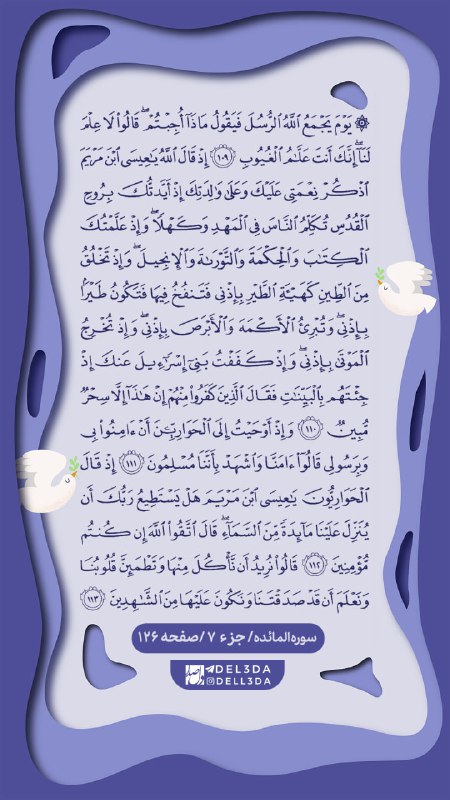 ۞ يَوْمَ يَجْمَعُ ٱللَّهُ ٱلرُّسُلَ فَيَقُولُ مَاذَآ أُجِبْتُمْ ۖ قَالُوا۟ لَا عِلْمَ
لَنَآ ۖ إِنَّكَ أَنتَ عَلَّٰمُ ٱلْغُيُوبِ ﴿١٠٩﴾ إِذْ قَالَ ٱللَّهُ يَٰعِيسَى ٱبْنَ مَرْيَمَ
ٱذْكُرْ نِعْمَتِى عَلَيْكَ وَعَلَىٰ وَٰلِدَتِكَ إِذْ أَيَّدتُّكَ بِرُوحِ
ٱلْقُدُسِ تُكَلِّمُ ٱلنَّاسَ فِى ٱلْمَهْدِ وَكَهْلًا ۖ وَإِذْ عَلَّمْتُكَ
ٱلْكِتَٰبَ وَٱلْحِكْمَةَ وَٱلتَّوْرَىٰةَ وَٱلْإِنجِيلَ ۖ وَإِذْ تَخْلُقُ
مِنَ ٱلطِّينِ كَهَيْـَٔةِ ٱلطَّيْرِ بِإِذْنِى فَتَنفُخُ فِيهَا فَتَكُونُ طَيْرًۢا
بِإِذْنِى ۖ وَتُبْرِئُ ٱلْأَكْمَهَ وَٱلْأَبْرَصَ بِإِذْنِى ۖ وَإِذْ تُخْرِجُ
ٱلْمَوْتَىٰ بِإِذْنِى ۖ وَإِذْ كَفَفْتُ بَنِىٓ إِسْرَٰٓءِيلَ عَنكَ إِذْ
جِئْتَهُم بِٱلْبَيِّنَٰتِ فَقَالَ ٱلَّذِينَ كَفَرُوا۟ مِنْهُمْ إِنْ هَٰذَآ إِلَّا سِحْرٌ
مُّبِينٌ ﴿١١٠﴾ وَإِذْ أَوْحَيْتُ إِلَى ٱلْحَوَارِيِّـۧنَ أَنْ ءَامِنُوا۟ بِى
وَبِرَسُولِى قَالُوٓا۟ ءَامَنَّا وَٱشْهَدْ بِأَنَّنَا مُسْلِمُونَ ﴿١١١﴾ إِذْ قَالَ
ٱلْحَوَارِيُّونَ يَٰعِيسَى ٱبْنَ مَرْيَمَ هَلْ يَسْتَطِيعُ رَبُّكَ أَن
يُنَزِّلَ عَلَيْنَا مَآئِدَةً مِّنَ ٱلسَّمَآءِ ۖ قَالَ ٱتَّقُوا۟ ٱللَّهَ إِن كُنتُم
مُّؤْمِنِينَ ﴿١١٢﴾ قَالُوا۟ نُرِيدُ أَن نَّأْكُلَ مِنْهَا وَتَطْمَئِنَّ قُلُوبُنَا
وَنَعْلَمَ أَن قَدْ صَدَقْتَنَا وَنَكُونَ عَلَيْهَا مِنَ ٱلشَّٰهِدِينَ ﴿١١٣﴾
سوره المائده/ جزء ۷ /صفحه ۱۲۶
DEL3DA
DELL3DA